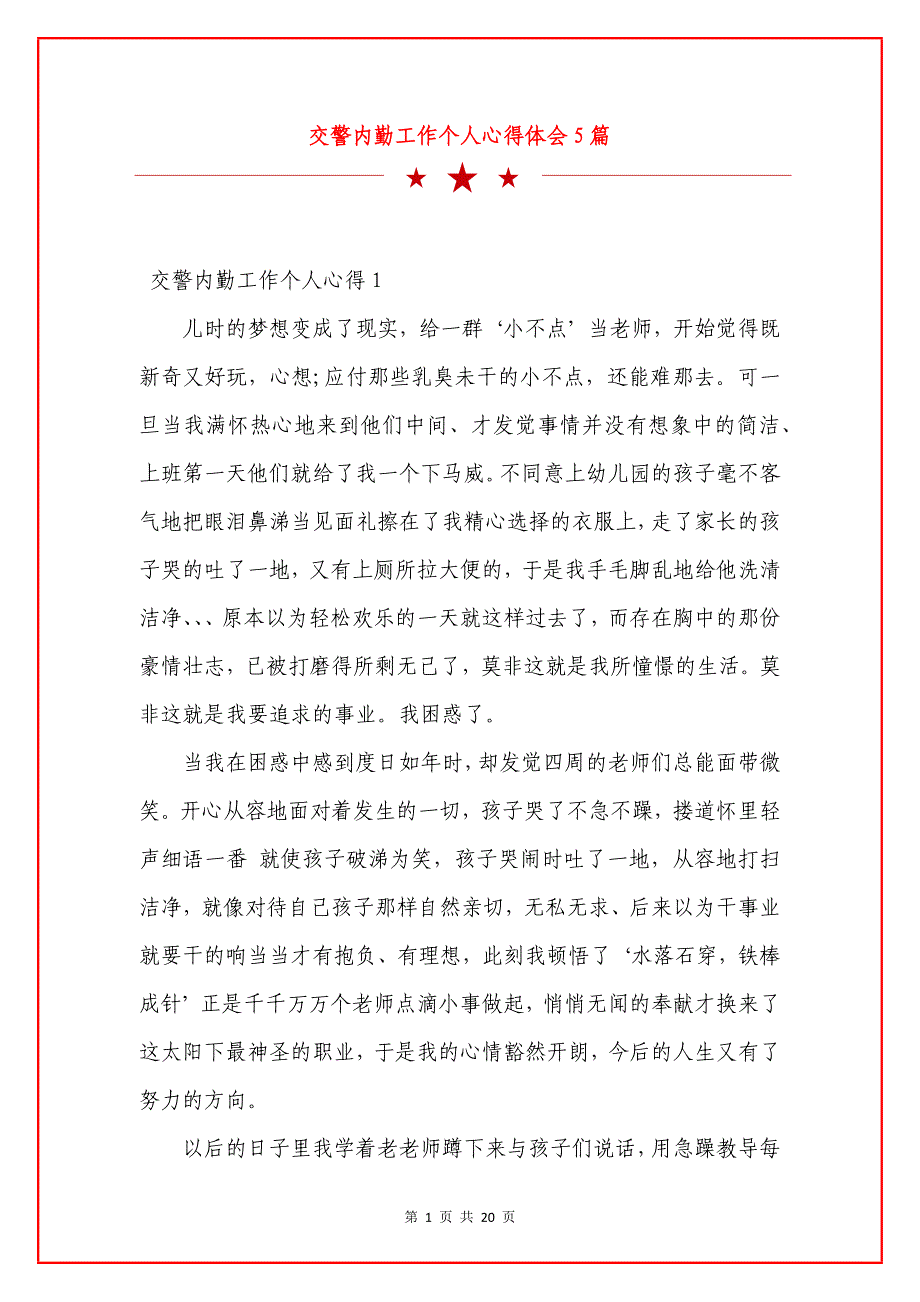 交警内勤工作个人心得体会 5 篇
交警内勤工作个人心得 1
儿时的梦想变成了现实，给一群‘小不点’当老师，开始觉得既
新奇又好玩，心想；应付那些乳臭未干的小不点，还能难那去。可一
旦当我满怀热心地来到他们中间、才发觉事情并没有想象中的简洁、
上班第一天他们就给了我一个下马威。不同意上幼儿园的孩子毫不客
气地把眼泪鼻涕当见面礼擦在了我精心选择的衣服上，走了家长的孩
子哭的吐了一地，又有上厕所拉大便的，于是我手毛脚乱地给他洗清
洁净、、、原本以为轻松欢乐的一天就这样过去了，而存在胸中的那份
豪情壮志，已被打磨得所剩无己了，莫非这就是我所憧憬的生活。莫
非这就是我要追求的事业。我困惑了。
当我在困惑中感到度日如年时，却发觉四周的老师们总能面带微
笑。开心从容地面对着发生的一切，孩子哭了不急不躁，搂道怀里轻
声细语一番 就使孩子破涕为笑，孩子哭闹时吐了一地，从容地打扫
洁净，就像对待自己孩子那样自然亲切，无私无求、后来以为干事业
就要干的响当当才有抱负、有理想，此刻我顿悟了‘水落石穿，铁棒
成针’正是千千万万个老师点滴小事做起，悄悄无闻的奉献才换来了
这太阳下最神圣的职业，于是我的心情豁然开朗，今后的人生又有了
努力的方向。
以后的日子里我学着老老师蹲下来与孩子们说话，用急躁教导每
第 1 页 共 20 页